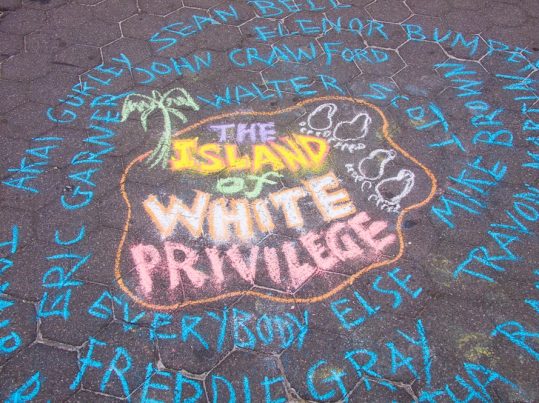 SEAN BELL
ELENOR BUMPE
AKAI GURLEY
JOHN CRAWFORD
ERIC GARNER
WALTER SCOTT
MIKE BROWN
TRAVON MARTIN
THE
ISLAND
of
WHITE
PRIVILEGE
EVERYBODY ELSE
FREDDIE GRAY